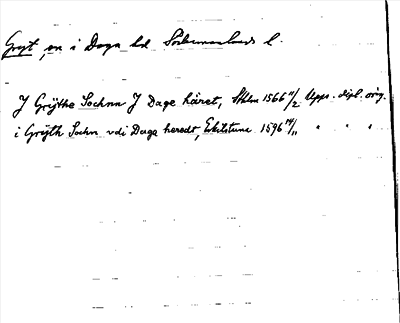 Gryt, sn i Daga hd Södermanlands l.
J Grijthe Sochnn J Dage häret, Sthlm 1566 11/2 Upps. dipl. orig.
i Grÿth Sochn vdi Daga heredt, Eskilstuna 1596 14/11 " " "